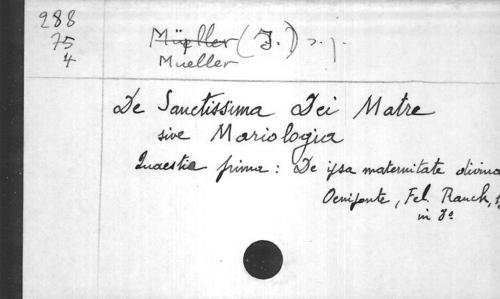 288
75
4
Müller (J.) s. j.
Mueller
De Sanctissima Dei Matre
sive Mariologia
Quaestio prima: De ipsa maternitate divina
Oeniponte, Fel. Rauch,
in 8º